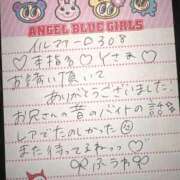 ANGEL BLUE GIRLS
308
♡本指名♡Yさま♡
お誘い頂いて
ありがとうございました
お兄さんの昔のバイトの話
レアでたのしかった
また待ってまねっっ♡
ふうか